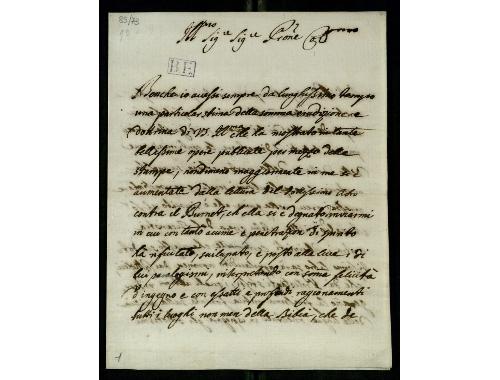 85/73
Ill.mo Sig.re Sig.re P.rone Col.mo
B.F.
Benche io avessi sempre da lunghissimo tempo
una particolar stima della somma erudizione, e
dottrina di V.S. Ill.ma che ha mostrato in tante
bellissime opere publicate per mezzo delle
stampe, nondimeno maggiormente in me si è
aumentata dalla lettura del
contra il Burnet, ch'ella si è degnata inviarmi
in cui con tanto acume, e penetrazion di spirito
ha rifiutato, sviluppato, e posto alla luce i di
lui paralogismi, interpretando con somma felicità
d'ingegno e con esatti, e profondi ragionamenti
tutti i luoghi non men della Bibia, che de
1